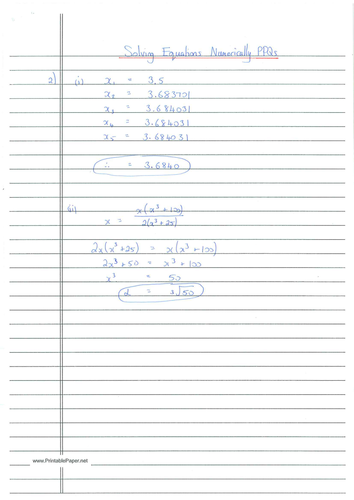 Solving Equations Numerically PPQs
2) (i) x₁ = 3.5
x₂ = 3.683701
x₃ = 3.684031
x₄ = 3.684031
x₅ = 3.684031
∴ = 3.6840
(ii) x = x(x³ + 100) / 2(x³ + 25)
2x(x³ + 25) = x(x³ + 100)
2x³ + 50 = x³ + 100
x³ = 50
x = ³√50
www.PrintablePaper.net